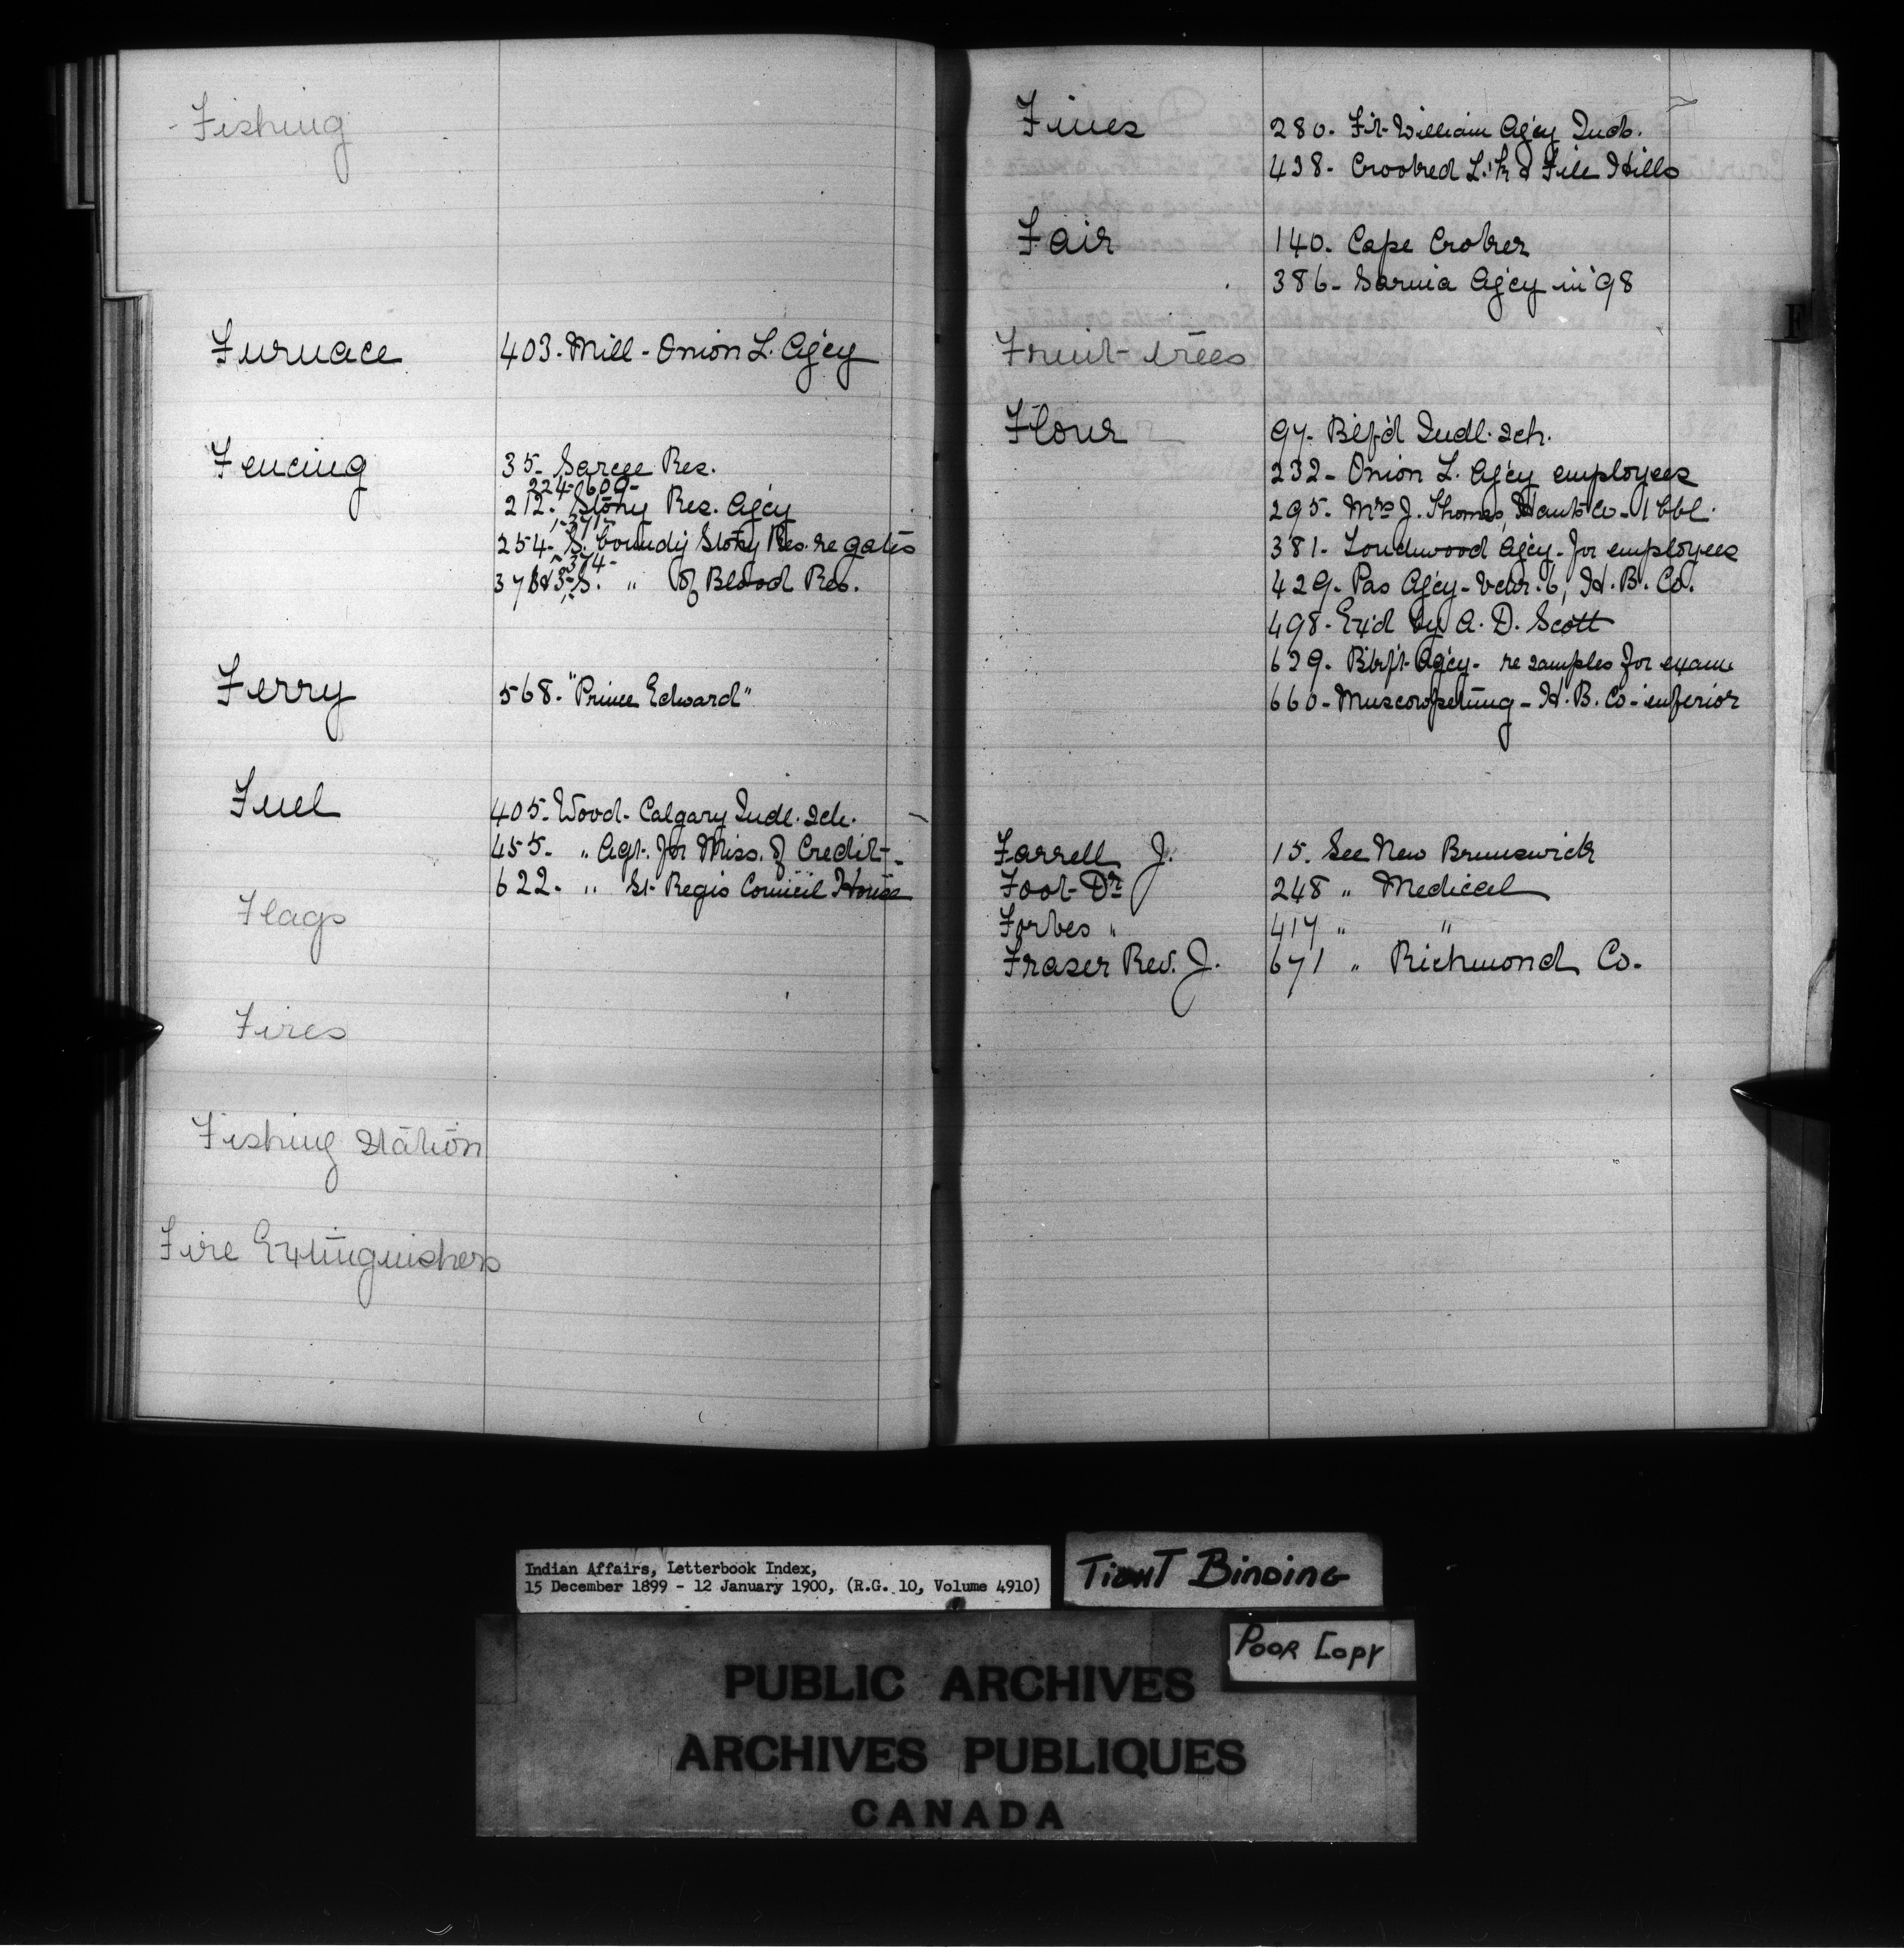 Fishing
Furnace 403. Mill - Onion L. Agcy
Fencing 35- Sarcee Res.
224-609-
212. Stony Res. Agcy
-371-
254- S. boundy Stony Res. re gates
-374-
S. " of Blood Res.
Ferry 568. "Prince Edward"
Fuel 405. Wood- Calgary Indl. Sch.
455- " Agt. for Miss. of Credit-
622. " St. Regis Council House
Flags
Fires
Fishing Station
Fire Extinguishers
Fines 280. Ft. William Agcy Inds.
438- Crooked L. & File Hills
Fair 140. Cape Croker
386- Sarnia Agcy in '98
Fruit-trees
Flour 97. Btlf'd Indl. Sch.
232- Onion L. Agcy employees
295. Mrs J. Thomas, Hants Co- 1 bbl.
381. Touchwood Agcy- for employees
429. Pas Agcy- vour. 6, H. B. Co.
498- Ex'd by A. D. Scott
629. Agcy- re samples for exam
660- Muscowpetung- H. B. Co- inferior
F
Farrell J. 15. See New Brunswick
Foot Dr 248 " Medical
Forbes " 417 " "
Fraser Rev. J. 671 " Richmond Co.
Indian Affairs, Letterbook Index,
15 December 1899 - 12 January 1900, (R.G. 10, Volume 4910)
TIGHT BINDING
POOR COPY
PUBLIC ARCHIVES
ARCHIVES PUBLIQUES
CANADA